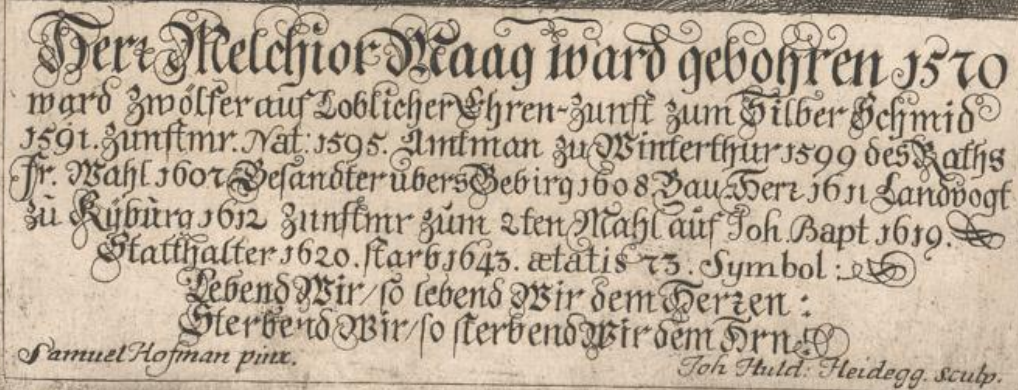 Herr Melchior Maag ward gebohren 1570
ward Zwölfer auf Loblicher Ehren-Zunft zum Silber Schmid
1591. Zunftmr. Nat: 1595. Amtman zu Winterthur 1599 des Raths
fr. Wahl 1607 Gesandter übers Gebirg 1608 Bau-Herr 1611 Landvogt
zu Kÿburg 1612 Zunftmr zum 2ten Mahl auf Joh. Bapt 1619.
Statthalter 1620. starb 1643. ætatis 73. Symbol:
Lebend Wir/so lebend Wir dem Herren:
Sterbend Wir/so sterbend Wir dem Hrn.
Samuel Hofman pinx.
Joh Huld: Heidegg. sculp.